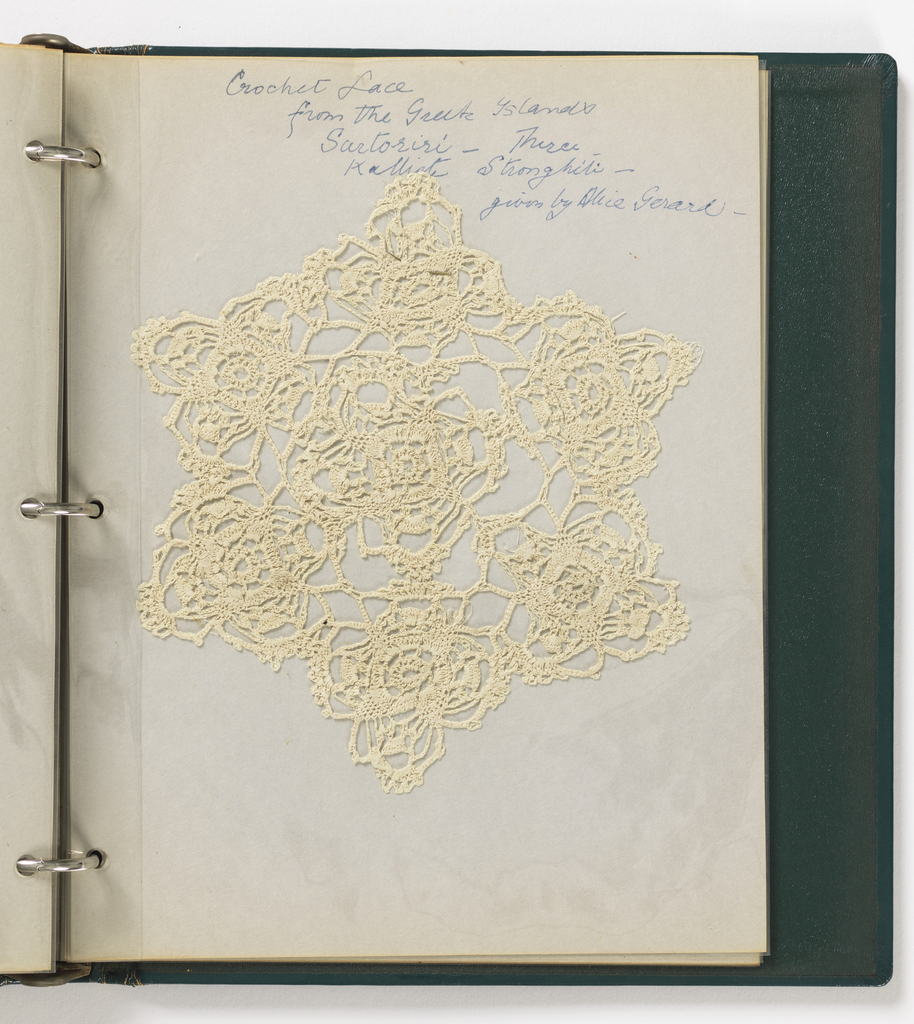 Crochet Lace
from the Greek Islands
Sartoriri – There –
Kalliste Stronghili –
given by Alice Gerard –